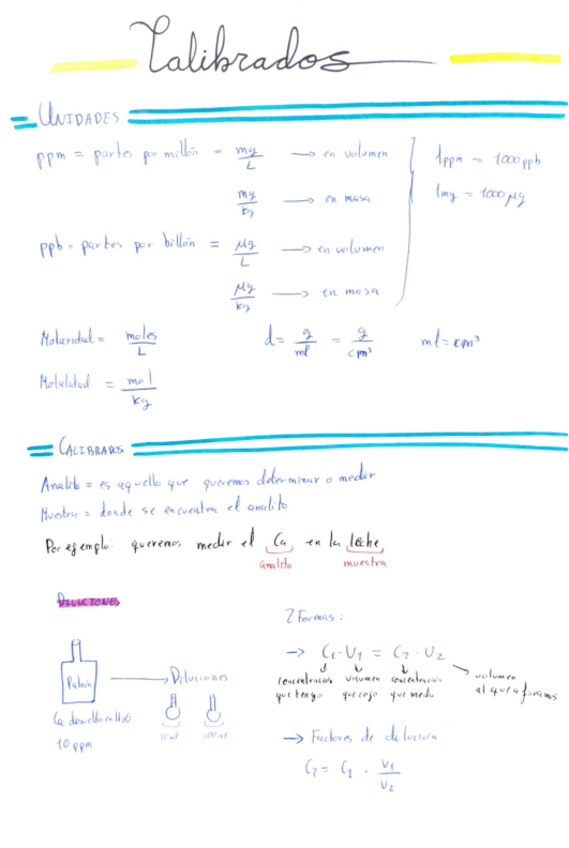 Calibrados
UNIDADES
ppm = partes por millón = mg/L → en volumen
mg/kg → en masa
ppb = partes por billón = µg/L → en volumen
µg/kg → en masa
1ppm = 1000 ppb
1mg = 1000 µg
Molaridad = moles/L
Molalidad = mol/kg
d = g/ml = g/cm³
ml = cm³
CALIBRADOS
Analito = es aquello que queremos determinar o medir
Muestra = donde se encuentra el analito
Por ejemplo: queremos medir el Ca en la leche
analito muestra
DILUCIONES
Patrón → Diluciones
10 ml 100 ml
Ca disuelto en H2O
10 ppm
2 Formas:
→ C1 · V1 = C2 · V2
concentración que tengo
volumen que cojo
concentración que
volumen al que aforamos
→ Factores de dilución
C2 = C1 · V1/V2